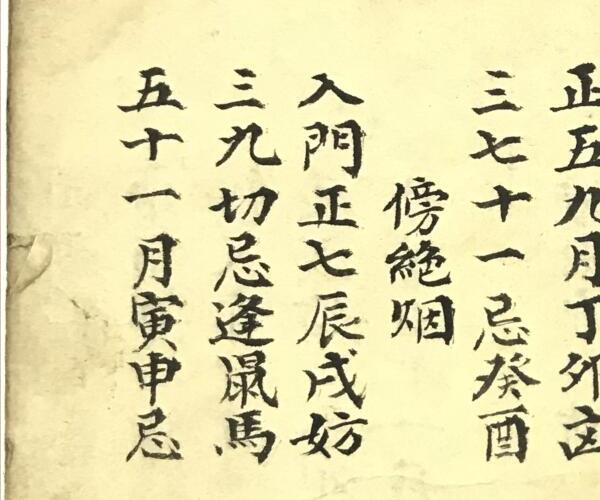 正五九月丁卯
三七十一忌癸酉
傍絶烟
入門正七辰戌妨
三九切忌逢鼠馬
五十一月寅申忌